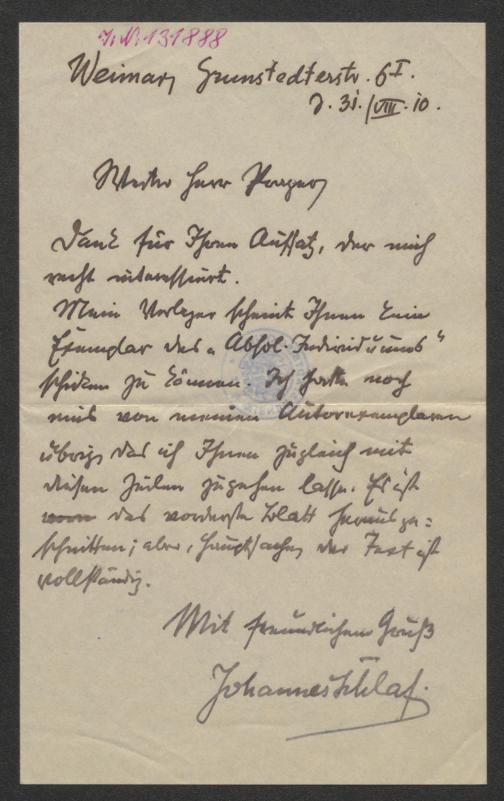 I.N. 131888
Weimar, Grunstedterstr. 6 I.
d. 31./VIII. 10.
Werter Herr Prager,
Dank für Ihren Aufsatz, der mich
recht interessiert.
Mein Verleger scheint Ihnen kein
Exemplar des „Absol. Individuums“
schicken zu können. Ich hatte noch
eins von meinen Autorexemplaren
übrig, das ich Ihnen zugleich mit
diesen Zeilen zugehen lasse. Es ist
das vorderste Blatt herausge=
schnitten; aber, Hauptsache, der Text ist
vollständig.
Mit freundlichem Gruß
Johannes Schlaf.